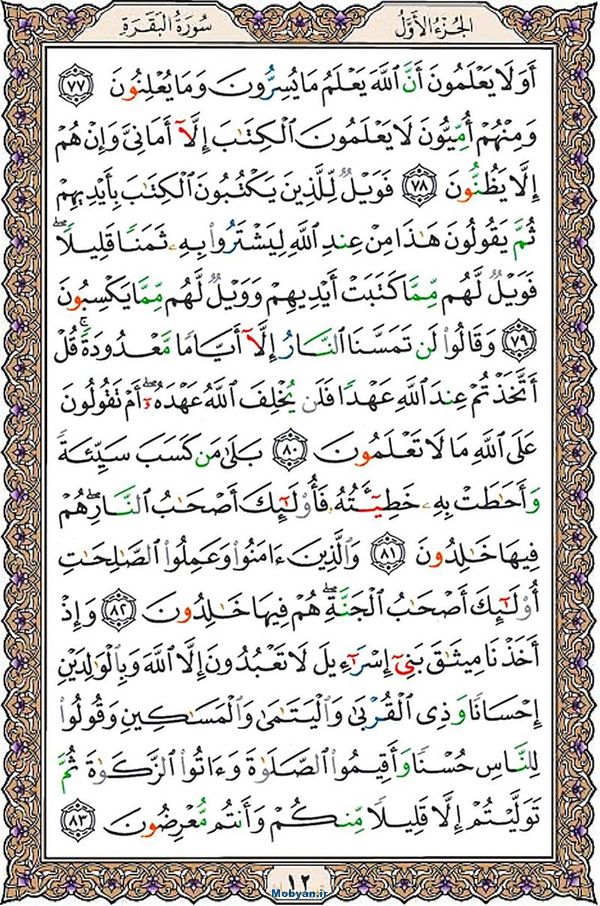 الجزء الأول
سورة البقرة
أَوَلَا يَعْلَمُونَ أَنَّ ٱللَّهَ يَعْلَمُ مَا يُسِرُّونَ وَمَا يُعْلِنُونَ ٧٧
وَمِنْهُمْ أُمِّيُّونَ لَا يَعْلَمُونَ ٱلْكِتَٰبَ إِلَّآ أَمَانِيَّ وَإِنْ هُمْ
إِلَّا يَظُنُّونَ ٧٨ فَوَيْلٌ لِّلَّذِينَ يَكْتُبُونَ ٱلْكِتَٰبَ بِأَيْدِيهِمْ
ثُمَّ يَقُولُونَ هَٰذَا مِنْ عِندِ ٱللَّهِ لِيَشْتَرُوا۟ بِهِۦ ثَمَنًا قَلِيلًا ۖ
فَوَيْلٌ لَّهُم مِّمَّا كَتَبَتْ أَيْدِيهِمْ وَوَيْلٌ لَّهُم مِّمَّا يَكْسِبُونَ
٧٩ وَقَالُوا۟ لَن تَمَسَّنَا ٱلنَّارُ إِلَّآ أَيَّامًا مَّعْدُودَةً ۚ قُلْ
أَتَّخَذْتُمْ عِندَ ٱللَّهِ عَهْدًا فَلَن يُخْلِفَ ٱللَّهُ عَهْدَهُۥٓ ۖ أَمْ تَقُولُونَ
عَلَى ٱللَّهِ مَا لَا تَعْلَمُونَ ٨٠ بَلَىٰ مَن كَسَبَ سَيِّئَةً
وَأَحَٰطَتْ بِهِۦ خَطِيٓـَٔتُهُۥ فَأُو۟لَٰٓئِكَ أَصْحَٰبُ ٱلنَّارِ ۖ هُمْ
فِيهَا خَٰلِدُونَ ٨١ وَٱلَّذِينَ ءَامَنُوا۟ وَعَمِلُوا۟ ٱلصَّٰلِحَٰتِ
أُو۟لَٰٓئِكَ أَصْحَٰبُ ٱلْجَنَّةِ ۖ هُمْ فِيهَا خَٰلِدُونَ ٨٢ وَإِذْ
أَخَذْنَا مِيثَٰقَ بَنِىٓ إِسْرَٰٓءِيلَ لَا تَعْبُدُونَ إِلَّا ٱللَّهَ وَبِٱلْوَٰلِدَيْنِ
إِحْسَانًا وَذِى ٱلْقُرْبَىٰ وَٱلْيَتَٰمَىٰ وَٱلْمَسَٰكِينِ وَقُولُوا۟
لِلنَّاسِ حُسْنًا وَأَقِيمُوا۟ ٱلصَّلَوٰةَ وَءَاتُوا۟ ٱلزَّكَوٰةَ ثُمَّ
تَوَلَّيْتُمْ إِلَّا قَلِيلًا مِّنكُمْ وَأَنتُم مُّعْرِضُونَ ٨٣
١٢
Mobyan.ir